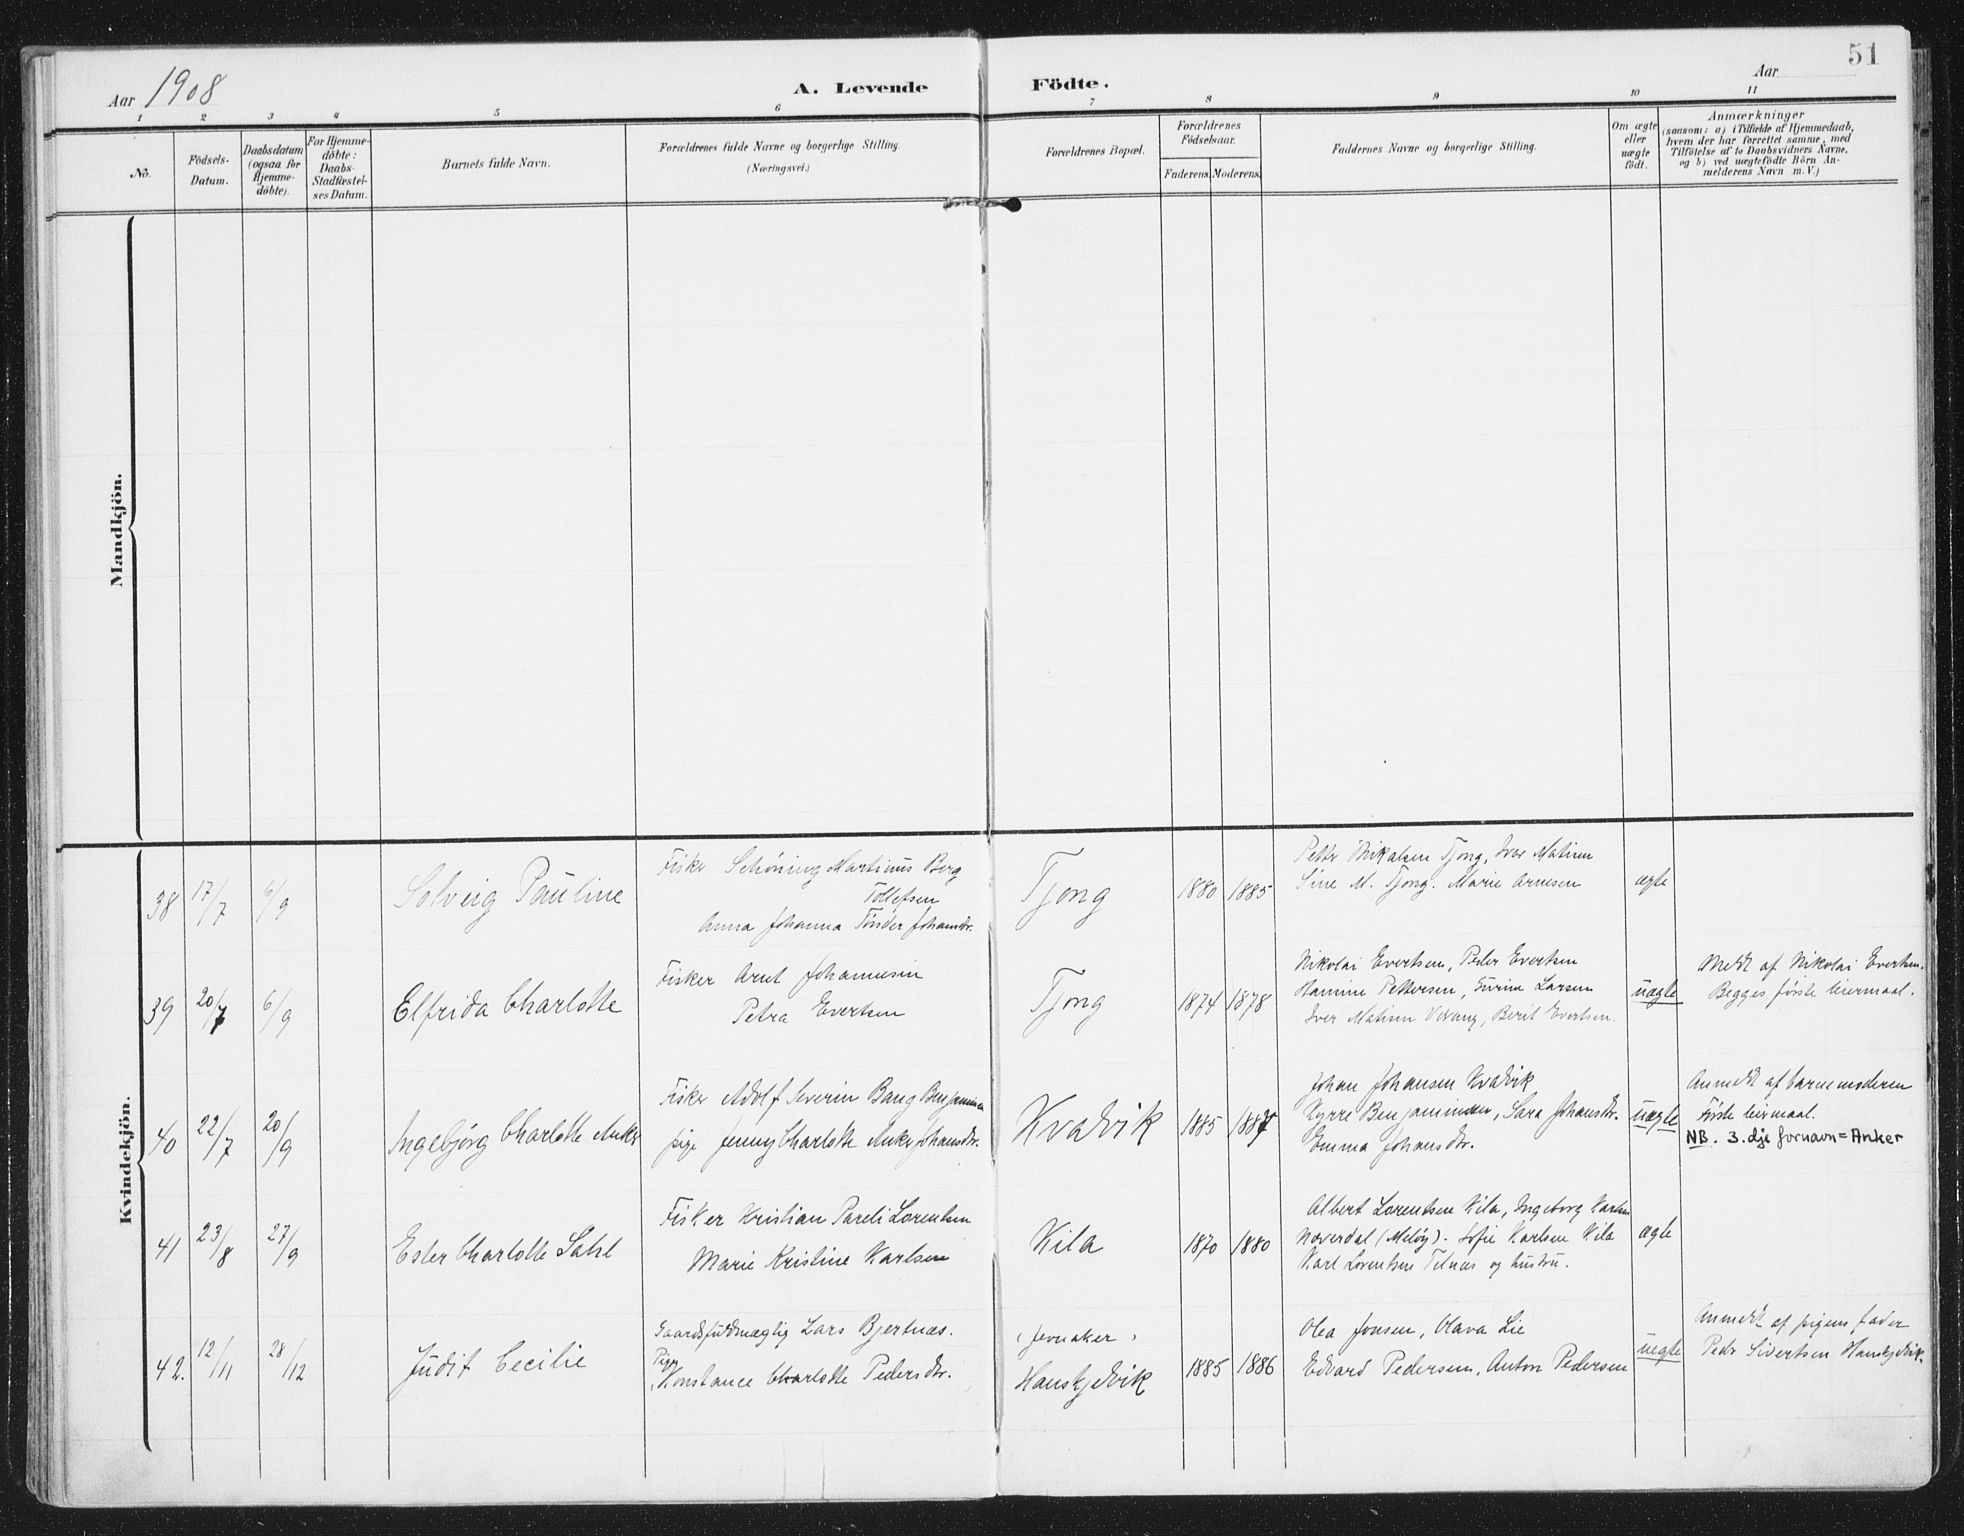 51
Aar 1908
A. Levende
Födte.
Aar
1 2 3 4 5 6 7 8 9 10 11
No.
Födsels-Datum.
Daabsdatum (ogsaa for Hjemme-döbte).
For Hjemme-döbte: Daabs-Stadfæstel-ses Datum.
Barnets fulde Navn.
Forældrenes fulde Navne og borgerlige Stilling.
(Næringsvei.)
Forældrenes Bopæl.
Forældrenes Födselsaar.
Faderens. Moderens.
Faddernes Navne og borgerlige Stilling.
Om ægte eller uægte födt.
Anmærkninger
(saasom: a) i Tilfælde af Hjemmedaab,
hvem der har forrettet samme, med
Tilföielse af to Daabsvidners Navne,
og b) ved uægtefödte Börn An-
melderens Navn m. V.)
Mandkjön.
Kvindekjön.
38 17/7 6/9 Solveig Pauline
Fisker Schöning Martinus Berg
Tollefsen
Anna Johanna Tönder Johansdr.
Tjong 1880 1885
Petter Nikolaisen Tjong, Iver Matisen
Sine M. Tjong. Marie Arnesen
ægte
39 20/7 6/9 Elfrida Charlotte
Fisker Arnt Johannesen
Petra Evertsen
Tjong 1874 1878
Nikolai Evertsen, Peder Evertsen
Hamine Pettersen, Larsen
Iver Matisen, Berit Evertsen.
uægte
Meldt af Nikolai Evertsen.
Begges første leiermaal.
40 22/7 20/9 Ingebjörg Charlotte Anker
Fisker Adolf Severin Bang Benjaminsen
pige Jenny Charlotte Anker Johansdr.
Kvadvik 1885 1887
Johan Johansen Kvadvik
Kyrre Benjaminsen, Sara Johansdr.
Emma Johansdr.
uægte
Anmeldt af barnemoderen
Første leiermaal.
NB. 3. dje fornavn = Anker
41 23/8 27/9 Ester Charlotte Sahl
Fisker Kristian Pareli Lorentsen
Marie Kristine Karlsen
Kila 1870 1880
Albert Lorentsen Kila, Ingeborg Karlsen
Næverdal (Meløy). Sofie Karlsen Kila
Karl Lorentsen Telnes og hustru.
ægte
42. 12/11 28/12 Judit Cecilie
Gaardsfuldmægtig Lars Bjertnæs.
Pige
Konstance Charlotte Pedersdr.
(Jevnaker)
Hanskjedvik 1885 1886
Olea Jonsen, Olava Lie
Edvard Pedersen, Anton Pedersen
uegte
Anmeldt af pigens fader
Peder Sivertsen Hanskjedvik.